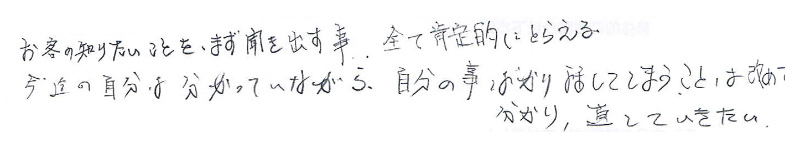 お客の知りたいことを、まず聞き出す事、全て肯定的にとらえる
今迄の自分は分かっていながら、自分の事ばかり話してしまうことは改めて
分かり、直していきたい。